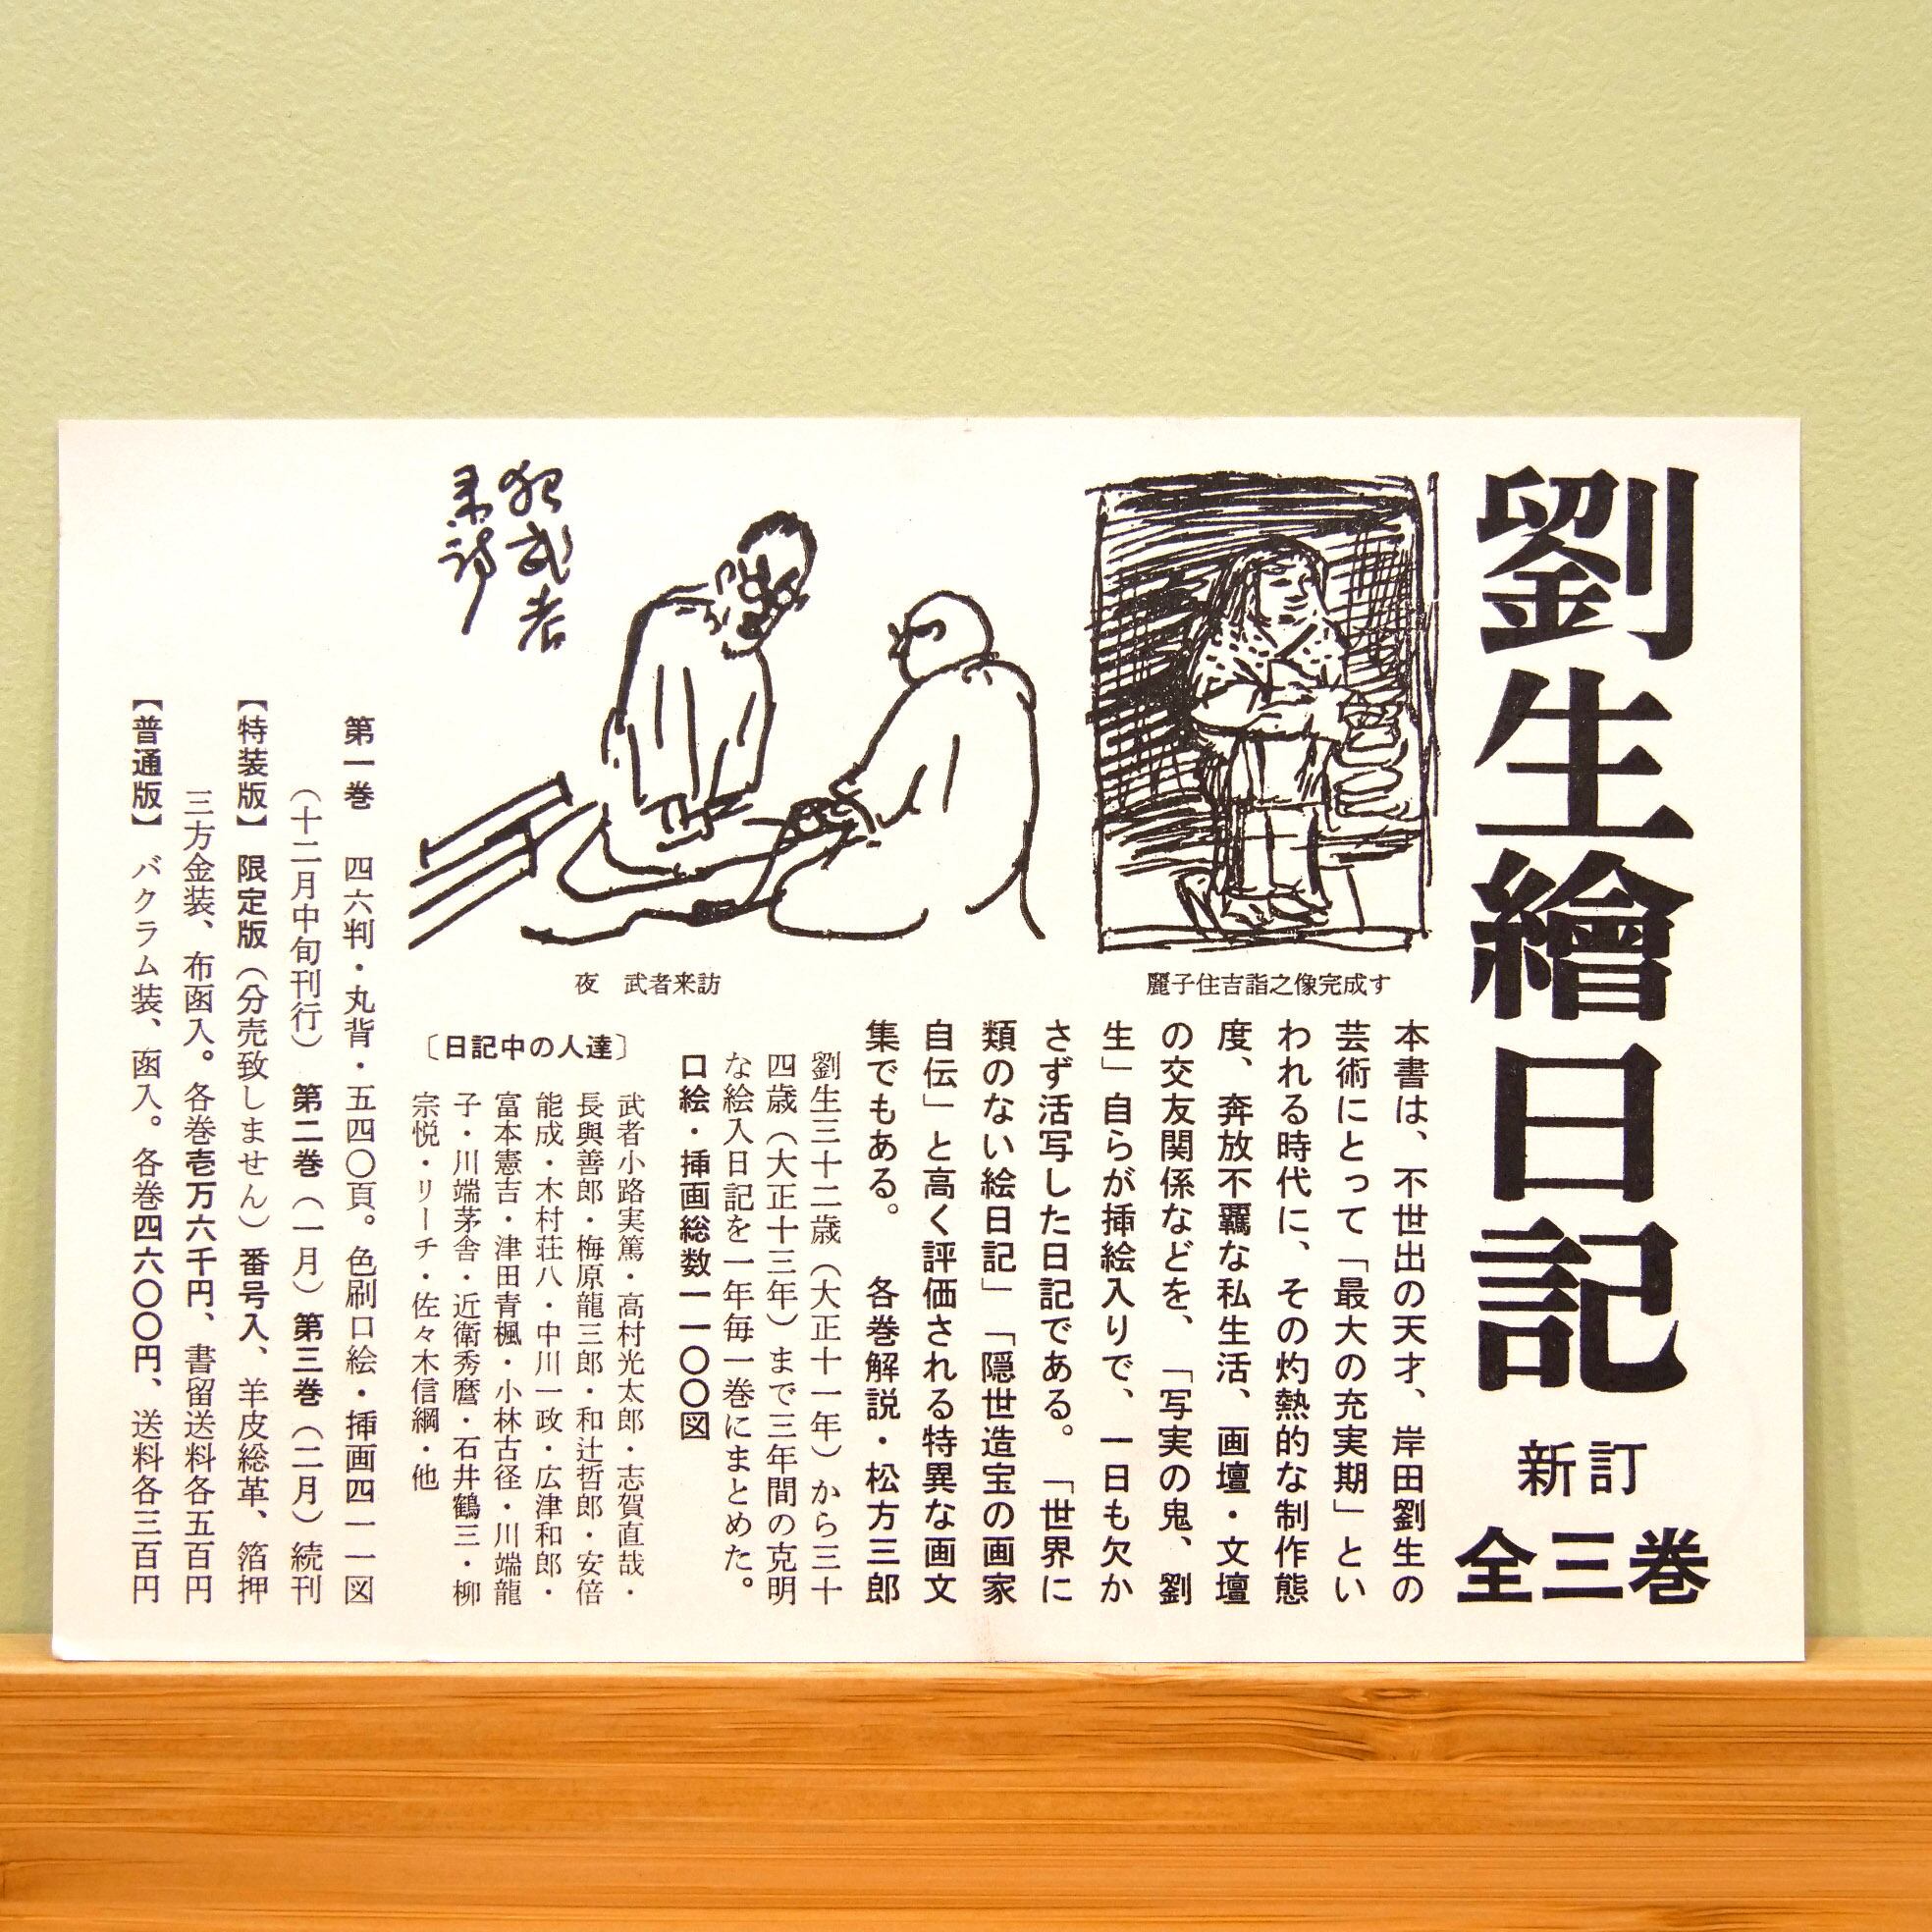 劉生繪日記
新訂
全三巻
麗子住吉詣之像完成す
武者
来訪
夜　武者来訪
本書は、不世出の天才、岸田劉生の
芸術にとって「最大の充実期」とい
われる時代に、その灼熱的な制作態
度、奔放不羈な私生活、画壇・文壇
の交友関係などを、「写実の鬼、劉
生」自らが挿絵入りで、一日も欠か
さず活写した日記である。「世界に
類のない絵日記」「隠世造宝の画家
自伝」と高く評価される特異な画文
集でもある。　各巻解説・松方三郎
劉生三十二歳（大正十一年）から三十
四歳（大正十三年）まで三年間の克明
な絵入日記を一年毎一巻にまとめた。
口絵・挿画総数一一〇〇図
〔日記中の人達〕
武者小路実篤・高村光太郎・志賀直哉・
長與善郎・梅原龍三郎・和辻哲郎・安倍
能成・木村荘八・中川一政・広津和郎・
富本憲吉・津田青楓・小林古径・川端龍
子・川端茅舎・近衛秀麿・石井鶴三・柳
宗悦・リーチ・佐々木信綱・他
第一巻　四六判・丸背・五四〇頁。色刷口絵・挿画四一一図
（十二月中旬刊行）第二巻（一月）第三巻（二月）続刊
【特装版】限定版（分売致しません）番号入、羊皮総革、箔押
三方金装、布函入。各巻壱万六千円、書留送料各五百円
【普通版】　バクラム装、函入。各巻四六〇〇円、送料各三百円